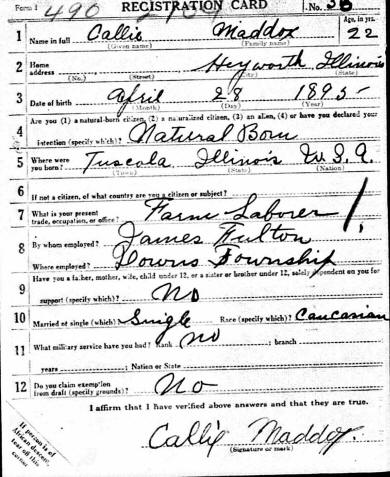 Form 1 490 REGISTRATION CARD No. 38
Age, in yrs.
1 Name in full Callie Maddox 22
(Given name) (Family name)
2 Home address Heyworth Illinois
(No.) (Street) (City) (State)
3 Date of birth April 28 1895
(Month) (Day) (Year)
Are you (1) a natural-born citizen, (2) a naturalized citizen, (3) an alien, (4) or have you declared your
4 intention (specify which)? Natural Born
5 Where were you born? Tuscola Illinois U.S.A.
(Town) (State) (Nation)
6 If not a citizen, of what country are you a citizen or subject?
7 What is your present trade, occupation, or office? Farm Laborer
8 By whom employed? James Fulton
Where employed? Downs Township
9 Have you a father, mother, wife, child under 12, or a sister or brother under 12, solely dependent on you for
support (specify which)? No
10 Married or single (which)? Single Race (specify which)? Caucasian
11 What military service have you had? Rank No ; branch
years ; Nation or State
12 Do you claim exemption from draft (specify grounds)? No
I affirm that I have verified above answers and that they are true.
Callie Maddox.
(Signature or mark)
If person is of
African descent,
tear off this
corner